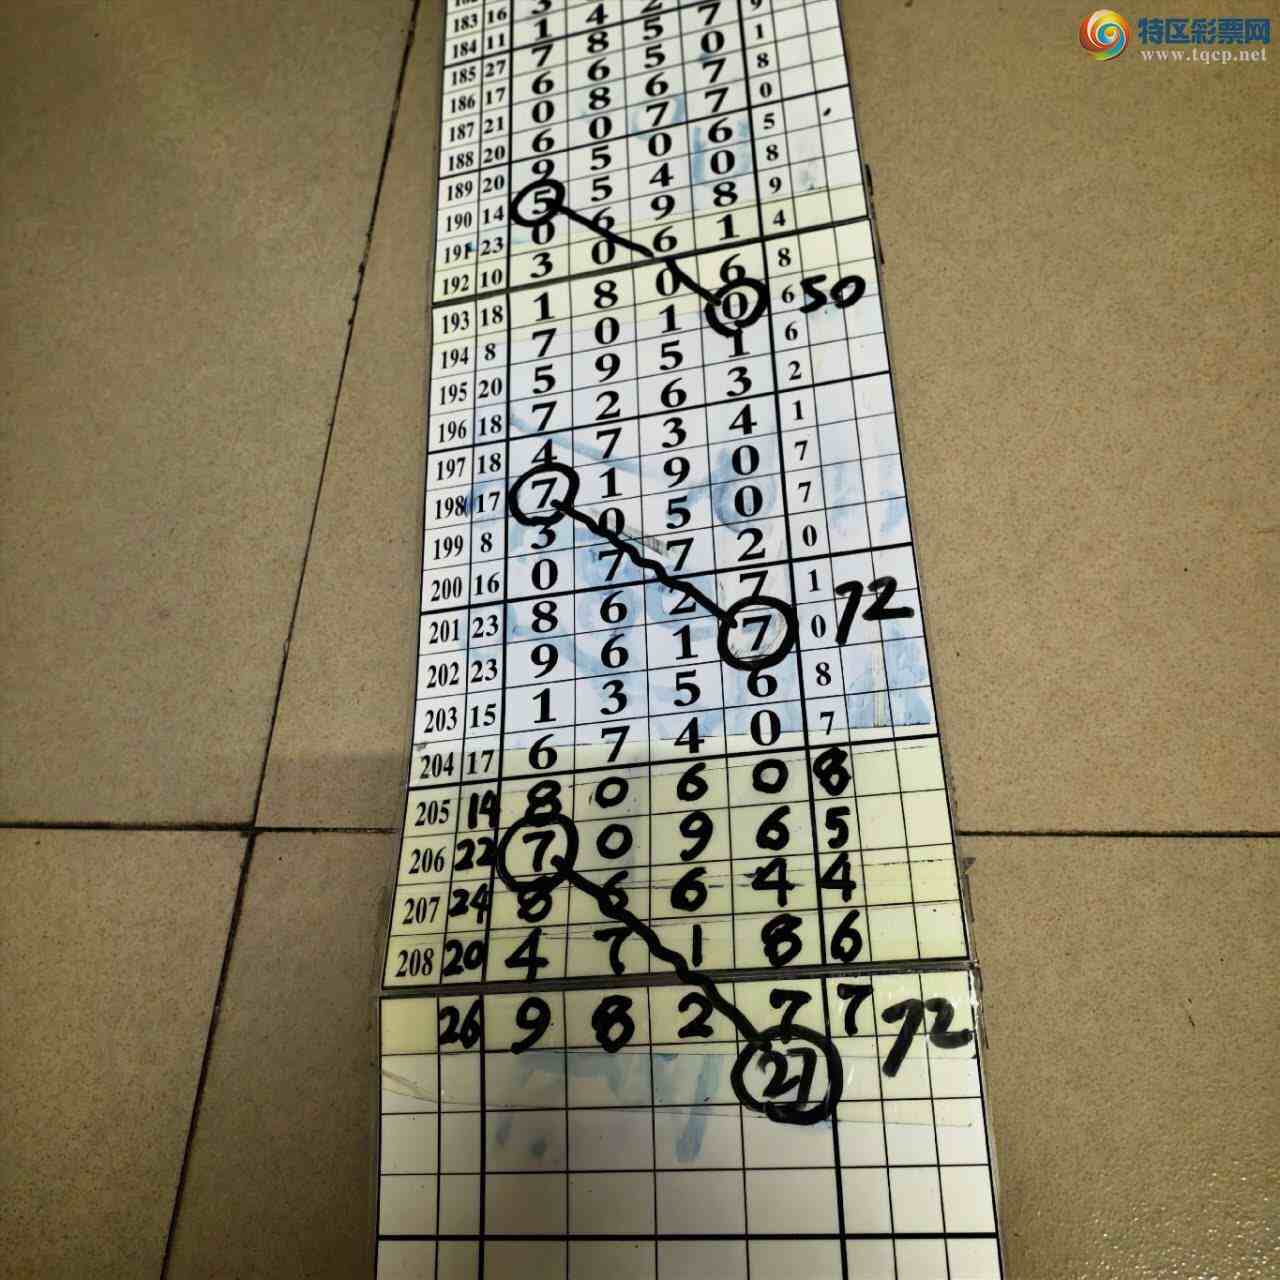 特区彩票网
www.tqcp.net
183 16 3
184 11 1 4 2
185 27 7 8 5 7 9
186 17 6 6 5 0 1
187 21 0 8 6 7 8
188 20 6 0 7 7 0
189 20 9 5 0 6 5
190 14 5 5 4 0 8
191 23 0 6 9 8 9
192 10 3 0 6 1 4
193 18 1 8 0 6 8
194 8 7 0 1 0 6 50
195 20 5 9 5 1 6
196 18 7 2 6 3 2
197 18 4 7 3 4 1
198 17 7 1 9 0 7
199 8 3 0 5 0 7
200 16 0 7 7 2 0
201 23 8 6 2 7 1
202 23 9 6 1 7 0 72
203 15 1 3 5 6 8
204 17 6 7 4 0 7
205 14 8 0 6 0 8
206 22 7 0 9 6 5
207 24 8 6 6 4 4
208 20 4 7 1 8 6
26 9 8 2 7 7 72
27